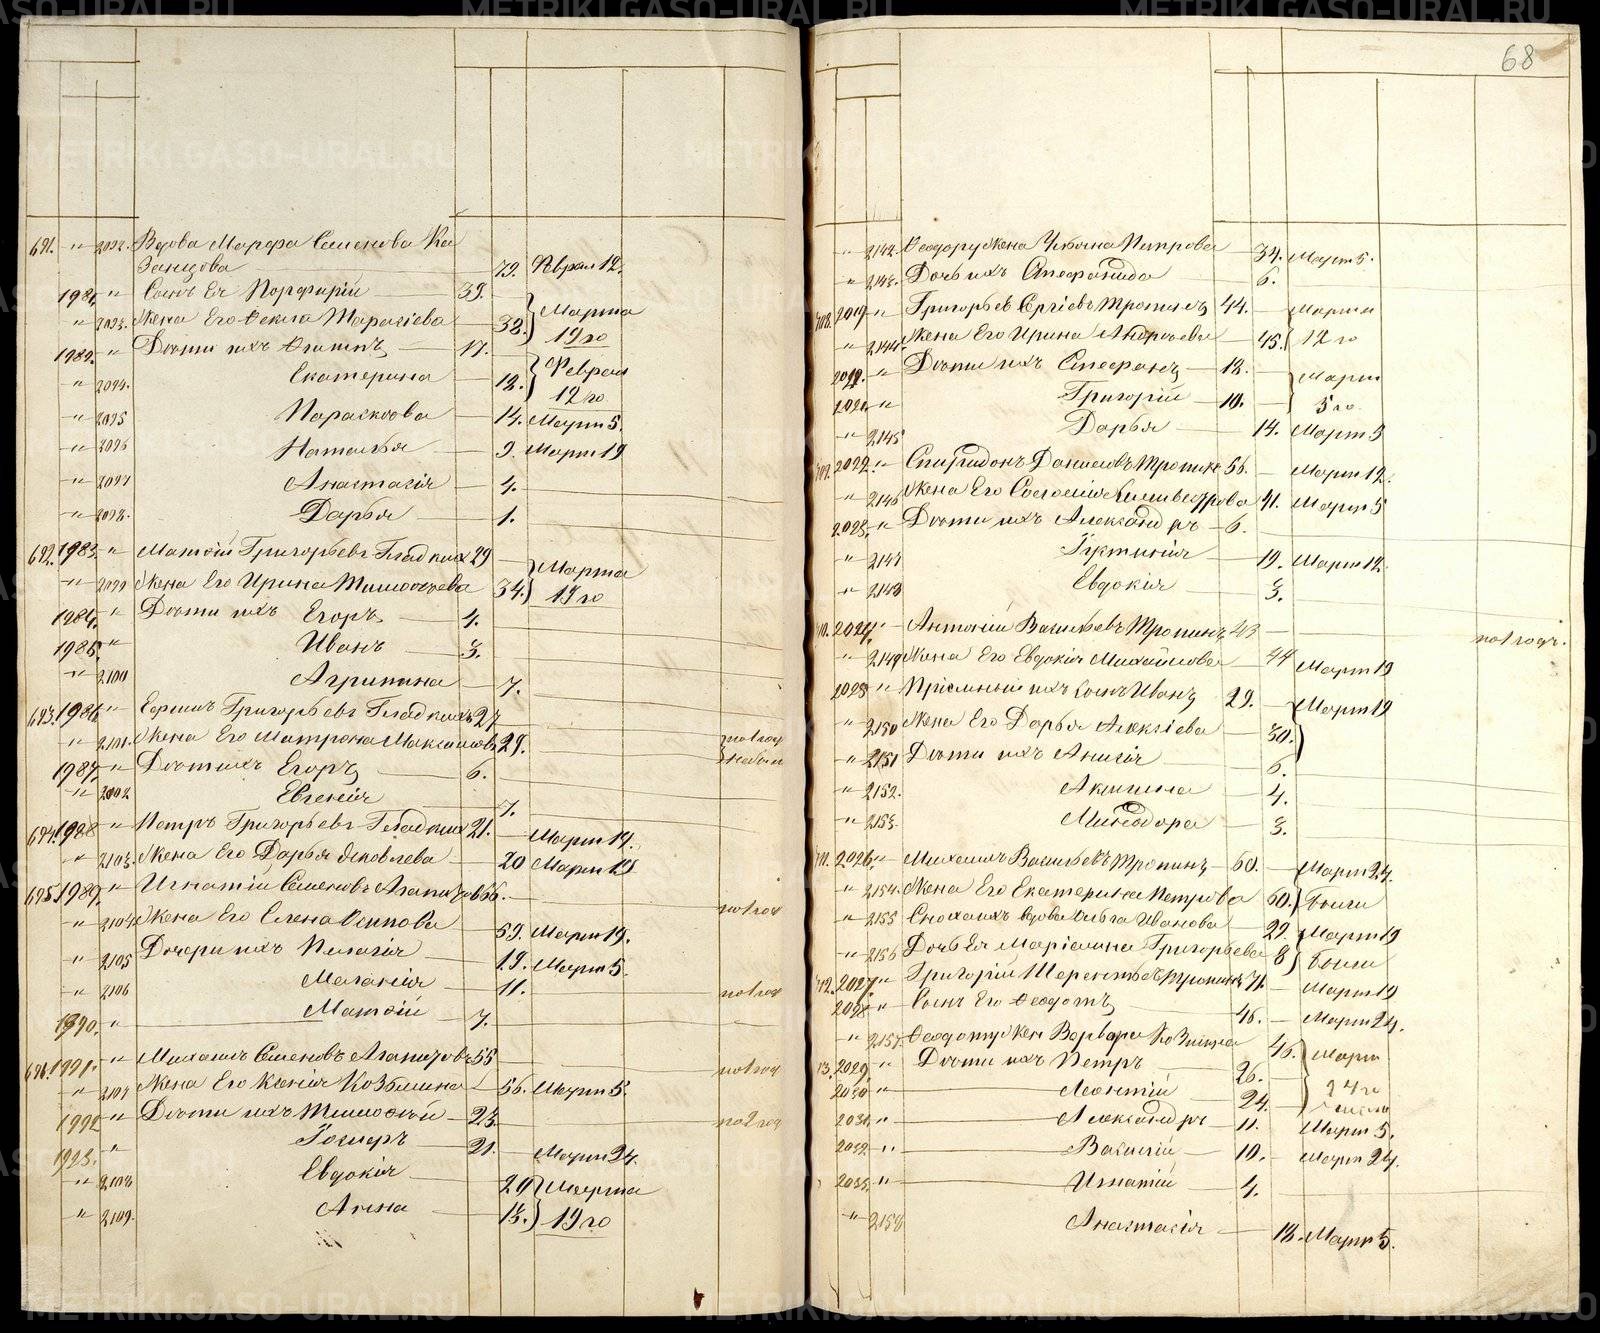 691. " 2092. Вдова Марфа Семенова Ка
занцова 79. Феврал 12.
1981. " Сынъ Ея Порфирій 39.
" 2093. Жена Его Фекла Тарасіева 38. Марта
19го
1982. " Дѣти ихъ 17.
" 2094. Екатерина 12. Феврал
12го
" 2095 Параскова 14. Март 5.
" 2096 Наталья 9. Март 19
" 2097 Анастасія 4.
" 2098. Дарья 1.
692. 1983. " Матѳій Григорьевъ Гладкихъ 29
Марта
" 2099 Жена Его Ирина Тимоѳеева 34. 19го
1984. " Дѣти ихъ Егоръ 4.
1985. " Иванъ 3.
" 2100 Агрипина 7.
693. 1986. " Ефимъ Григорьевъ Гладкихъ 27
" 2101. Жена Его Матрона Максимова 29.
1987. " Дѣти ихъ Егоръ 6.
" 2102 Евгенія 7.
694. 1988 " Петръ Григорьевъ Гладкихъ 21. Март 19.
" 2103. Жена Его Дарья Яковлева 20 Март 19
695. 1989. " Игнатій Семеновъ Агапитовъ 66.
" 2104 Жена Его Елена Осипова 59. Март 19.
" 2105 Дочери ихъ Пелагія 19. Март 5.
" 2106 Меланія 11.
1990. " Матѳій 7.
696. 1991. " Михаилъ Семеновъ Агапитовъ 55
" 2107 Жена Его Ксенія Козьмина 56. Март 5.
1992 " Дѣти ихъ Тимоѳей 23.
1993. " 21. Март 24.
" 2108 Евдокія 20 Марта
" 2109. Анна 15. 19го
68
" 2142. Ѳеодору Жена Ульяна Петрова 34. Март 5.
" 2143. Дочь ихъ Стефанида 6.
708. 2019 " Григорьев Сергіевъ Тропинъ 44. Марта
" 2144. Жена Его Ирина Андреева 45. 12го
" Дѣти ихъ Стефанъ 18. Март
2021 " Григорій 10. 5го.
" 2145 Дарья 14. Март 5
709. 2022. " Спиридонъ Даниловъ Тропинъ 56. Март 12.
" 2146 Жена Его Соломія Силивестрова 41. Март 5
2023. " Дѣти ихъ Александръ 6.
" 2147 Іустинія 19. Март 12.
" 2148 Евдокія 3.
710. 2024. " Антоній Васильевъ Тропинъ 43
" 2149 Жена Его Евдокія Михайлова 44 Март 19
2025 " Пріемный ихъ сынъ Иванъ 29. Март 19
" 2150 Жена Его Дарья Алексіева 30.
" 2151 Дѣти ихъ Анисія 6.
" 2152. Акилина 4.
" 2153. Минодора 3.
711. 2026. " Михаилъ Васильевъ Тропинъ 60. Март 24.
" 2154. Жена Его Екатерина Петрова 60. были
" 2155 Сноха ихъ вдова Ольга Иванова 29. Март 19
" 2156 Дочь Ея Маріамна Григорьева 8 были
712. 2027. " Григорій Терентьевъ Тропинъ 71. Март 19
2028. " Сынъ Его Ѳеодотъ 46. Март 24.
" 2157. Ѳеодоту Жен Варвара Козмина 46. Март
713. 2029. " Дѣти ихъ Петръ 26.
2030 " Леонтій 24. 24го
2031. " Александръ 11. Март 5.
2032. " Василій 10. Март 24.
2033. " Игнатій 4.
" 2158 Анастасія 18. Март 5.
METRIKI.GASO-URAL.RU